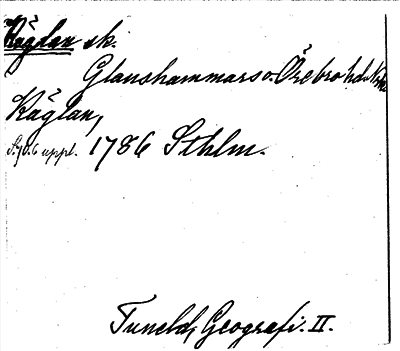 Käglan sk.
Glanshammars o. Örebro hd. Nrke
Käglan,
S. 70. 6 uppl. 1786 Sthlm.
Tuneld, Geografi. II.